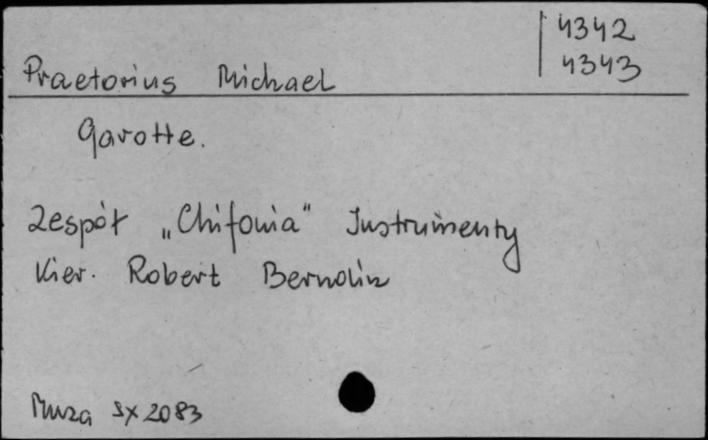 4342
4343
Praetorius Michael
Gavotte.
Zespół „Chifonia" Instrumenty
Kier. Robert Bernolin
Muza SX 2083